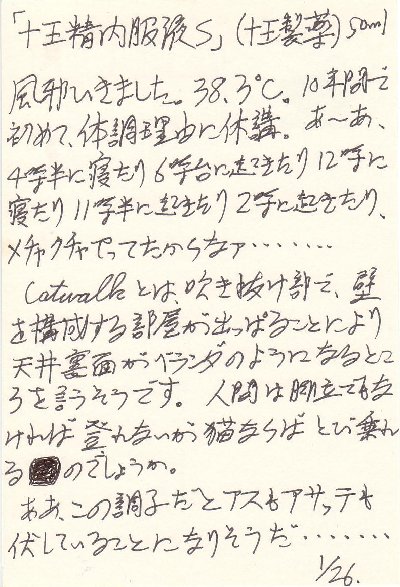 「十王精内服液S」(十王製薬) 50ml
風邪ひきました。38.3℃。10年間で
初めて、体調理由に休講。あ〜あ、
4時半に寝たり6時台に起きたり12時に
寝たり11時半に起きたり2時に起きたり、
メチャクチャやってたからなァ‥‥‥‥
Catwalkとは、吹き抜け部で、壁
を構成する部屋が出っぱることにより
天井裏面がベランダのようになるとこ
ろを言うそうです。人間は脚立でもな
ければ登れないが猫ならばとび乗れ
るのでしょうか。
ああ、この調子だとアスもアサッテも
伏していることになりそうだ‥‥‥‥
1/26.